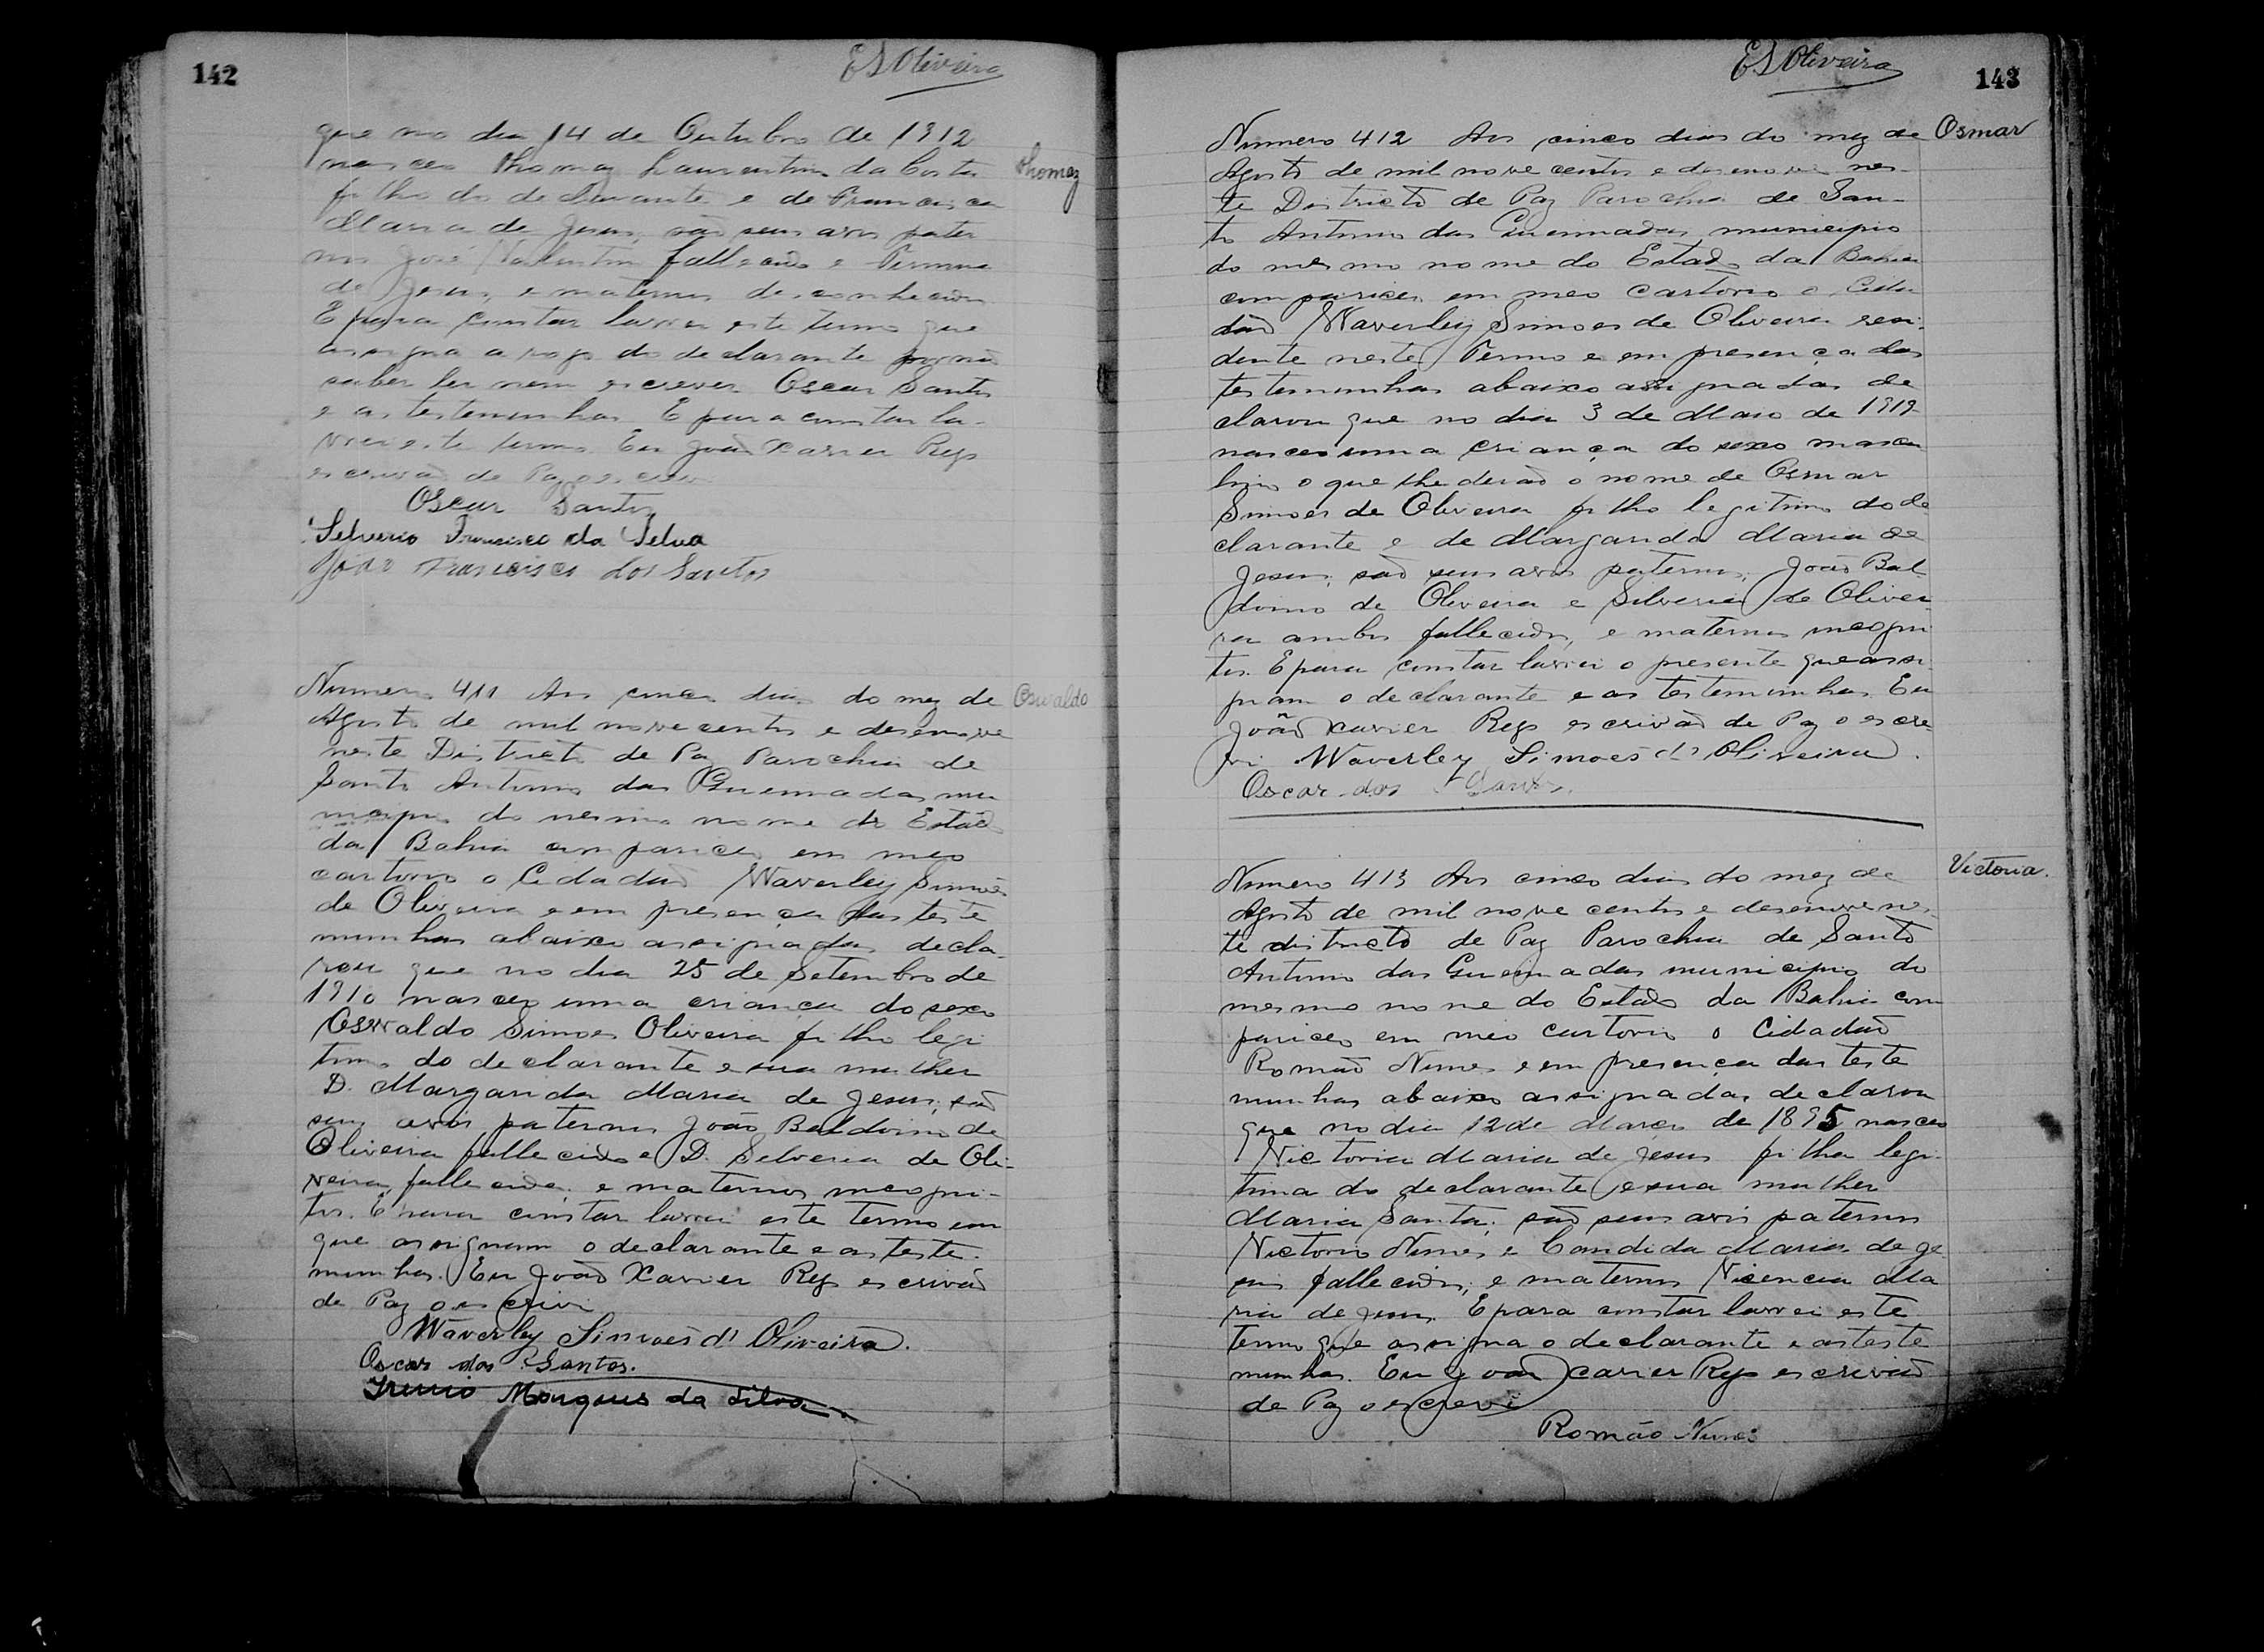 142
E S Oliveira
que no dia 14 de Outubro de 1912
nasceu Thomaz Laurentino da Costa
Thomaz
filho do declarante e de Francisca
Maria de Jesus, são seus avos pater
nos José Valentim fallecido e Firmina
de Jesus, e maternos desconhecidos
E para constar lavrei este termo que
assigna a rogo do declarante por não
saber ler nem escrever Oscar Santos
e as testemunhas. E para constar la-
vrei este termo. Eu João Xavier Reys
escrivão de Paz o escrevi
Oscar Santos
Silverio Francisco da Silva
João Francisco dos Santos
Numero 411 Aos cinco dias do mez de
Oswaldo
Agosto de mil nove centos e desenove
neste Districto de Paz Parochia de
Santo Antonio das Queimadas mu
nicipio do mesmo nome do Estado
da Bahia compariceo em meo
cartorio o Cidadão Waverley Simões
de Oliveira e em presença das teste
munhas abaixo assignadas decla-
rou que no dia 25 de Setembro de
1910 nasceo uma criança do sexo
Oswaldo Simões Oliveira filho legi
timo do declarante e sua mulher
D. Margarida Maria de Jesus; são
seus avós paternos João Baldoino de
Oliveira fallecido e D. Silveria de Oli-
veira, fallecida; e maternos incogni-
tos. E para constar lavrei este termo em
que assignam o declarante e as teste-
munhas. Eu João Xavier Reys escrivão
de Paz o escrivi
Waverley Simoes d' Oliveira.
Oscar dos Santos.
Irenio Marques da Silva
E S Oliveira
143
Numero 412 Aos cinco dias do mez de
Osmar
Agosto de mil nove centos e desenove nes-
te Districto de Paz Parochia de San-
to Antonio das Queimadas municipio
do mesmo nome do Estado da Bahia
compariceo em meo cartorio o Cida
dão Waverley Simoes de Oliveira resi-
dente neste Termo e em presença das
testemunhas abaixo assignadas de
clarou que no dia 3 de Maio de 1919
nasceo uma criança do sexo mascu
lino o que lhe derão o nome de Osmar
Simoes de Oliveira filho legitimo do de
clarante e de Margarida Maria de
Jesus; são seus avos paternos; João Bal-
doino de Oliveira e Silveria de Olivei-
ra ambos fallecidos, e maternos incogni
tos. E para constar lavrei o presente que assi
gnam o declarante e as testemunhas. Eu
João Xavier Reys escrivão de Paz o escre-
vi. Waverley Simoes d' Oliveira.
Oscar dos Santos.
Numero 413 Aos cinco dias do mez de
Victoria.
Agosto de mil nove centos e desenove nes-
te districto de Paz Parochia de Santo
Antonio das Queimadas municipio do
mesmo nome do Estado da Bahia com
pariceo em meo cartorio o Cidadão
Romão Nunes e em presença das teste
munhas abaixo assignadas declarou
que no dia 12 de Março de 1895 nasceo
Victoria Maria de Jesus filha legi-
tima do declarante e sua mulher
Maria Santa; são seus avós paternos
Victorio Nunes e Candida Maria de Je
sus fallecidos; e maternos Vicencia Ma
ria de Jesus. E para constar lavrei este
termo que assigna o declarante e as teste
munhas. Eu João Xavier Reys escrivão
de Paz o escrevi
Romão Nunes